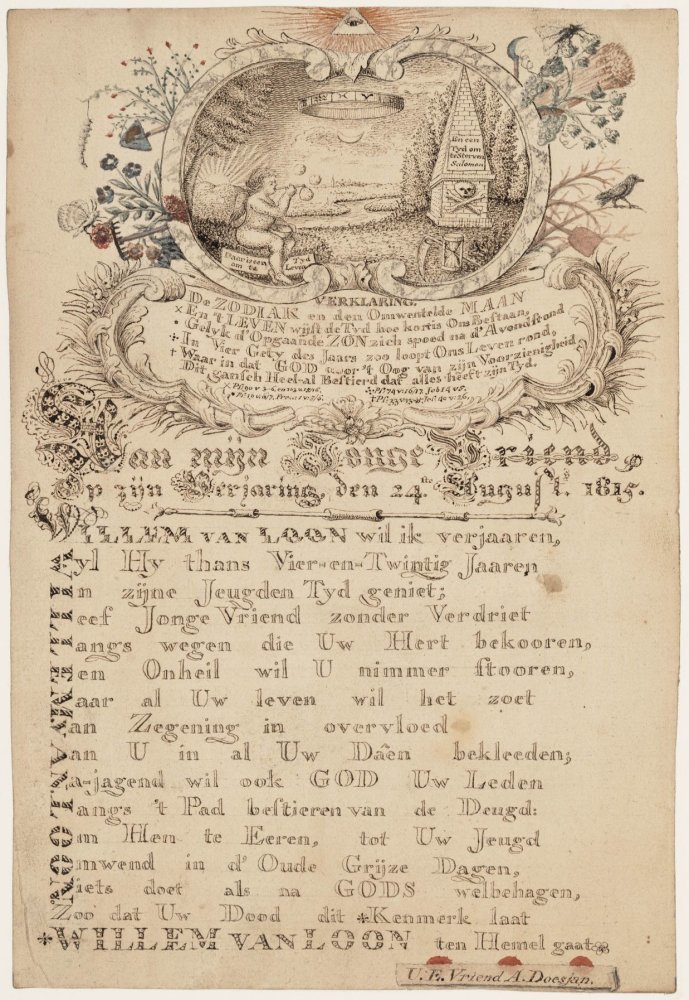 Een een
Tyd om
te Sterven
Salomon
Daar is een Tyd
om te Leven
VERKLARING.
De ZODIAK en den Omwentelde MAAN
× En 't LEVEN wijst de Tyd hoe kort is Ons Bestaan,
* Gelyk d'Opgaande ZON zich spoed na d'Avondstond
⁘ In Vier Gety des Jaars zoo loopt Ons Leven rond,
† Waar in dat GOD door 't Oog van zijn Voorzienigheid
Dit gansch Heel-al Bestierd dat alles heeft zijn Tyd.
Aan mijn Jonge Vriend,
Op zijn Verjaring, den 24.ste August.s 1815.
WILLEM VAN LOON wil ik verjaaren,
Wyl Hy thans Vier-en-Twintig Jaaren
In zijne Jeugden Tyd geniet;
Leef Jonge Vriend zonder Verdriet
Langs wegen die Uw Hert bekooren,
Een Onheil wil U nimmer stooren,
Maar al Uw leven wil het zoet
Van Zegening in overvloed
Aan U in al Uw Daên bekleeden;
Na-jagend wil ook GOD Uw Leden
Langs 't Pad bestieren van de Deugd:
Om Hen te Eeren, tot Uw Jeugd
Omwend in d'Oude Grijze Dagen,
Niets doet als na GODS welbehagen,
Zoo dat Uw Dood dit *Kenmerk laat
*WILLEM VAN LOON ten Hemel gaat
U. E. Vriend A. Doesjan.